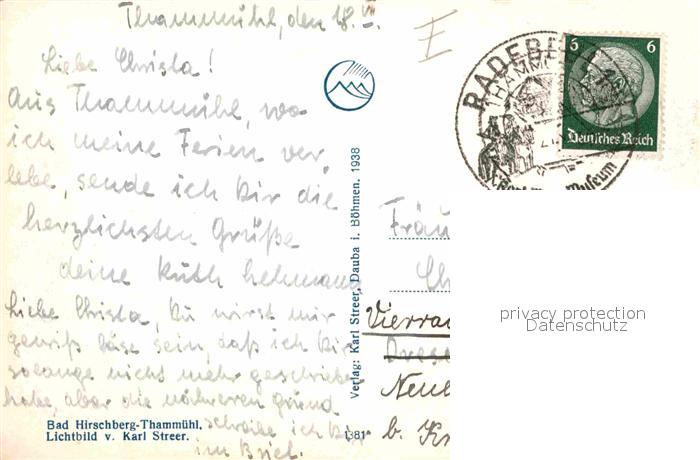 Thammühl, den 18. VII.
Liebe Christa!
Aus Thammühl, wo
ich meine Ferien ver
lebe, sende ich Dir die
herzlichsten Grüße
deine Ruth
Liebe Christa, Du wirst mir
gewiß böse sein, daß ich Dir
solange nicht mehr geschrieben
habe, aber die näheren Grund
schreibe ich Dir
im Brief.
Bad Hirschberg-Thammühl.
Lichtbild v. Karl Streer.
1381
Verlag: Karl Streer, Dauba i. Böhmen. 1938
E
RADEBEUL
Museum
6 6
Deutsches Reich
Fräu
Ch
Vierra
Dres
Neu
b. K
privacy protection
Datenschutz